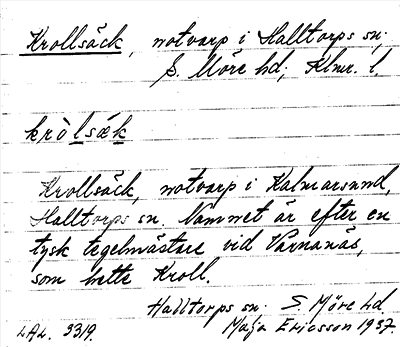 Krollsäck, notvarp i Halltorps sn.
S. Möre hd, Klmr. l.
kròlsæk
Krollsäck, notvarp i Kalmarsund,
Halltorps sn. Namnet är efter en
tysk tegelmästare vid Värnanäs,
som hette Kroll.
Halltorps sn. S. Möre hd.
LAL. 3319. Maja Ericsson 1937.